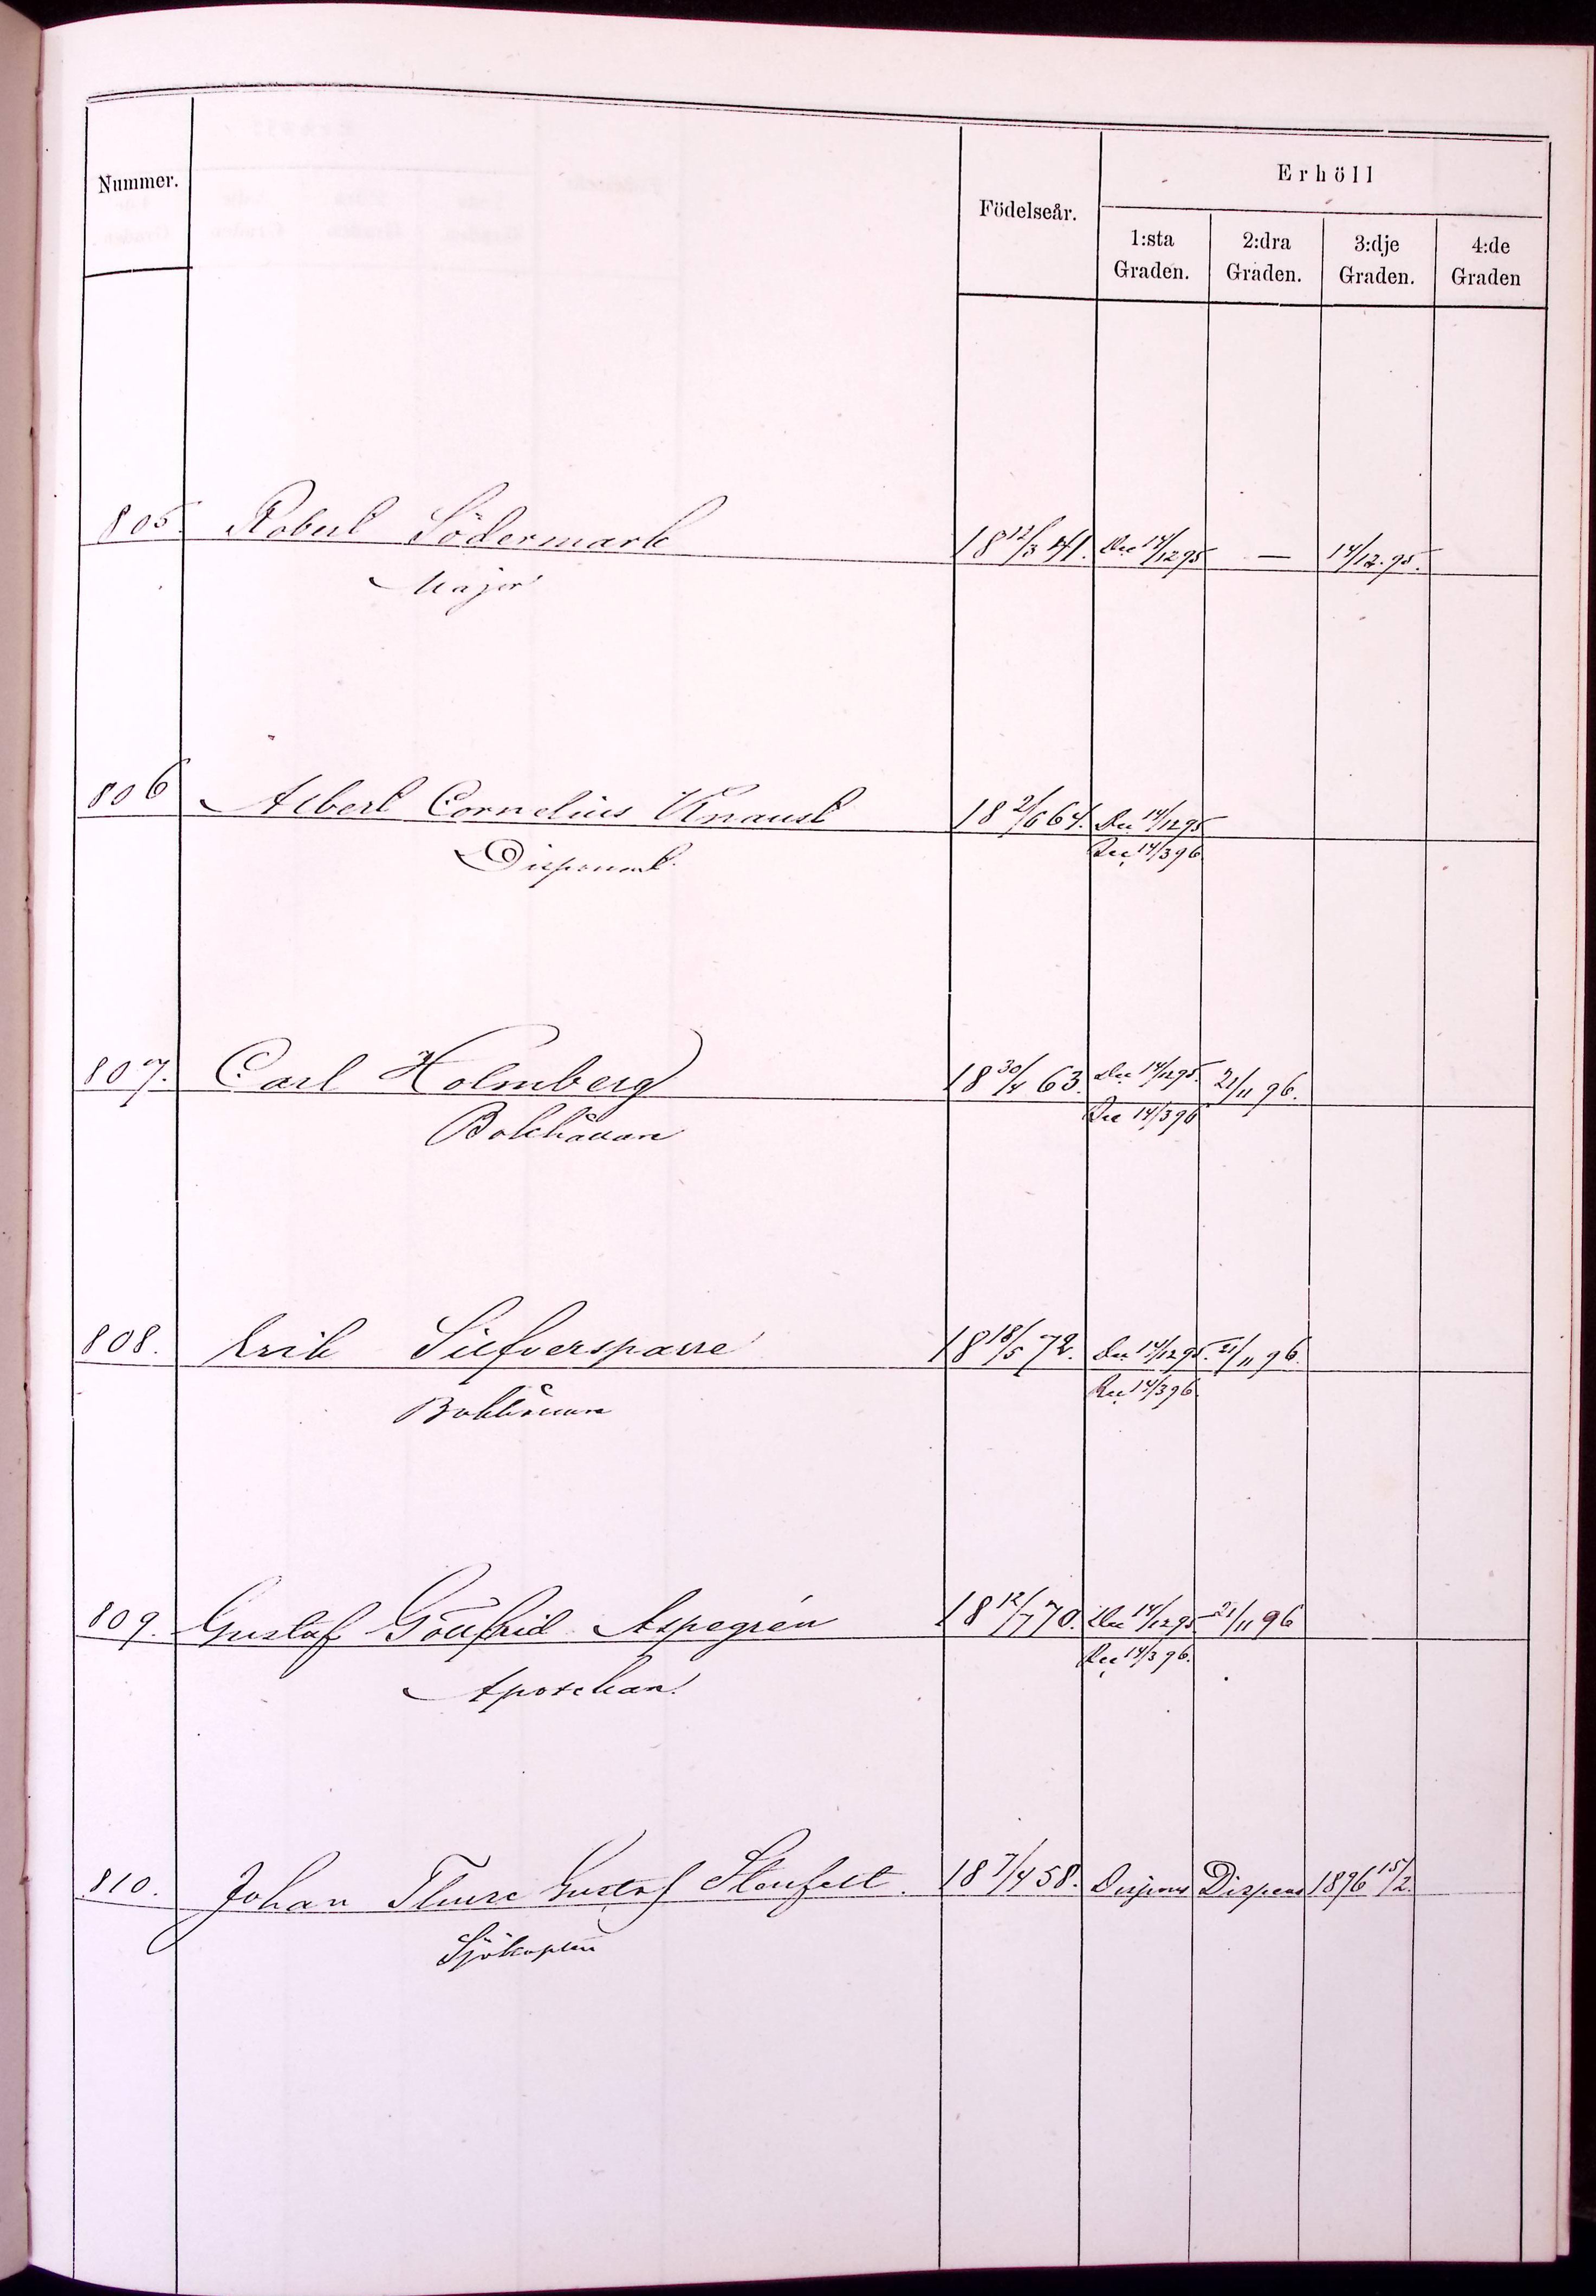 Nummer.
Födelseår.
Erhöll
1:sta Graden.
2:dra Graden.
3:dje Graden.
4:de Graden
805. Robert Södermark 18 12/3 41. 14/12 95 — 14/12. 95.
Major
806 Albert Cornelius Knaust 18 2/6 64. 14/12 95
Disponent. Rec 14/3 96
807. Carl Holmberg 18 30/4 63. 14/12 95. 21/11 96.
Bokhållare Rec 14/3 96
808. Erik Silfversparre 18 18/5 72. 14/12 95. 21/11 96.
Bokhållare Rec 14/3 96
809. Gustaf Götfrid Aspegrén 18 12/7 70. 14/12 95 21/11 96
Apotekare Rec 14/3 96.
810. Johan Thure Gustaf Stenfelt. 18 7/4 58. Dispens Dispens 1896 15/2.
Sjökapten